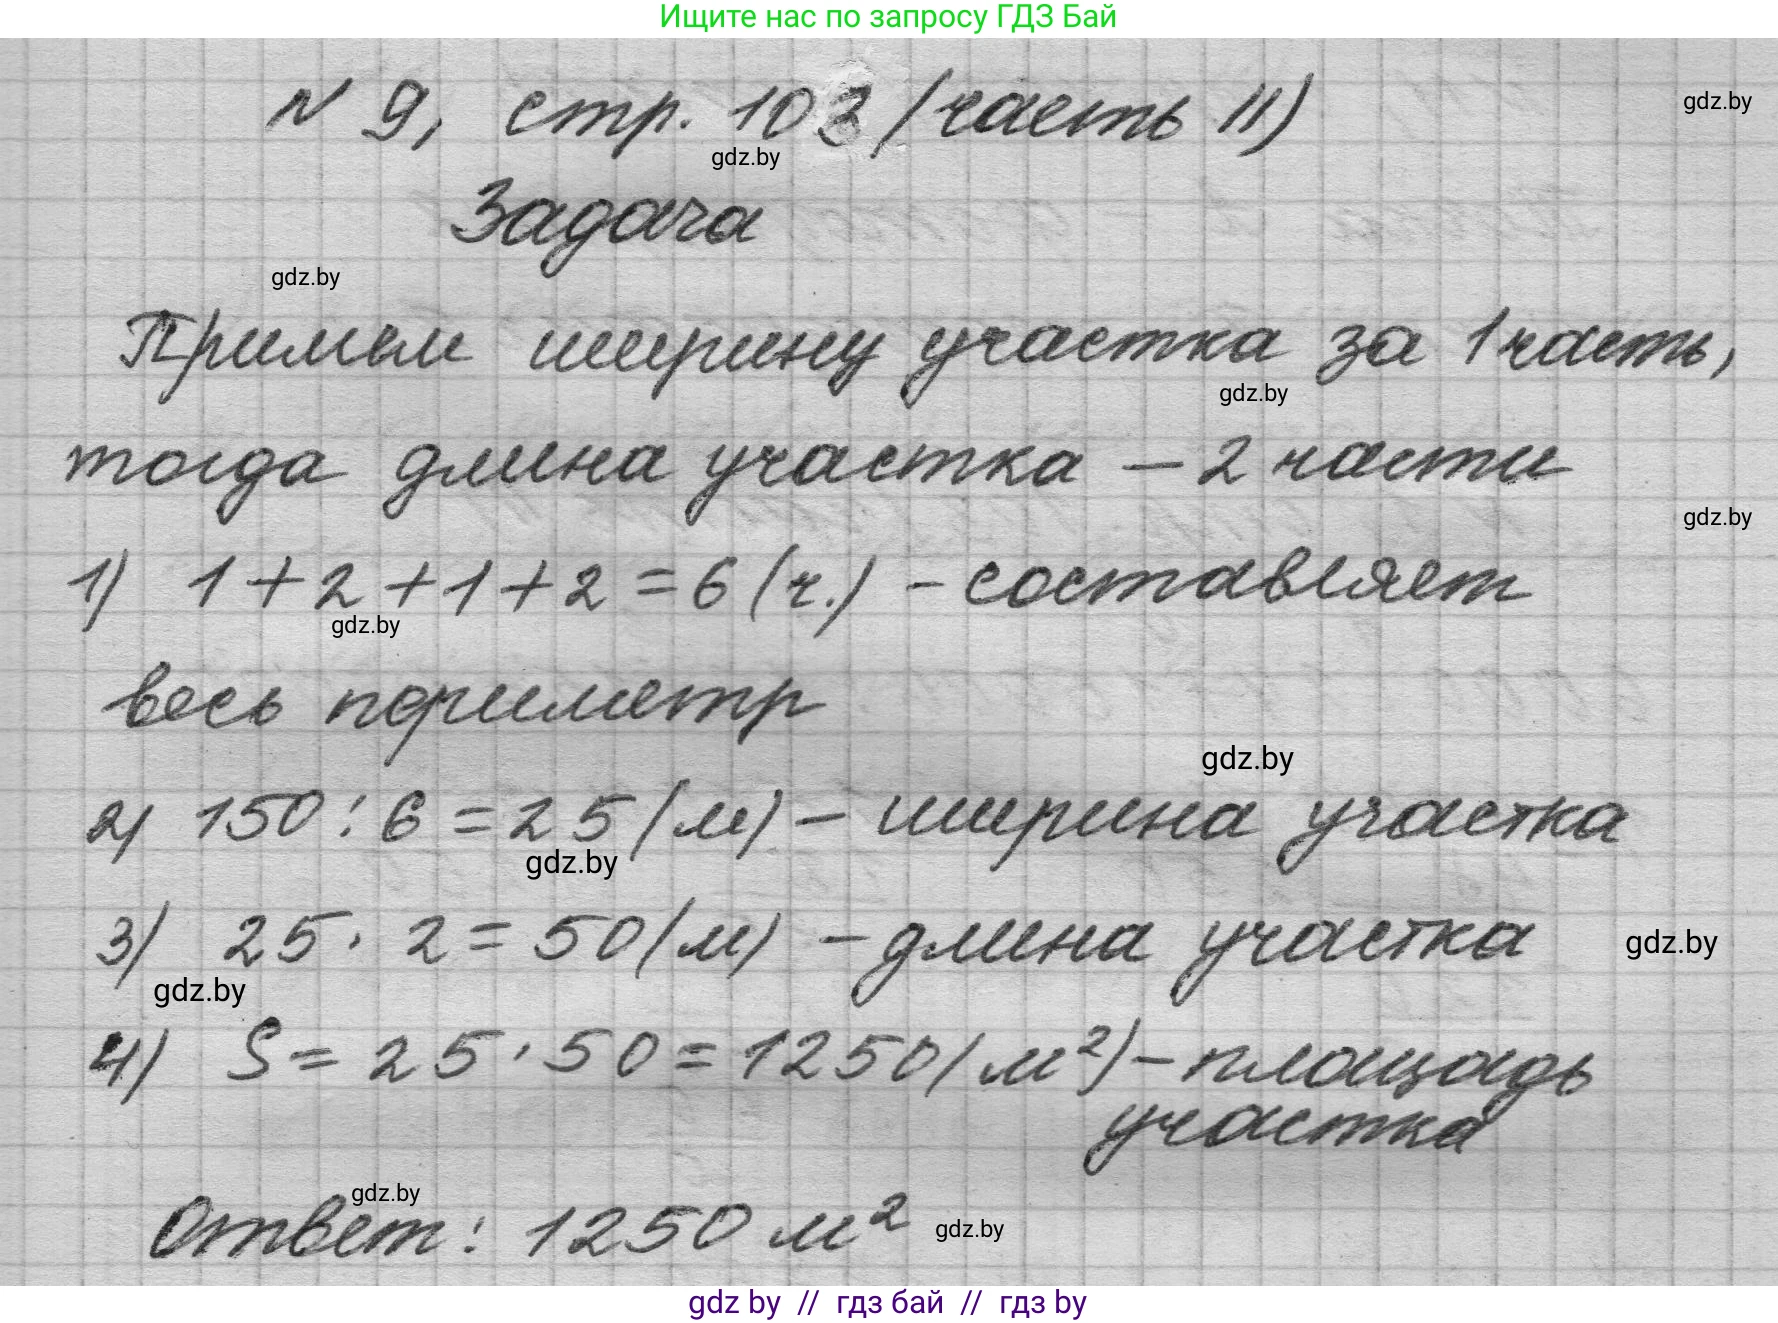 Ищите нас по запросу ГДЗ Бай
N 9, стр. 103 (часть II)
gdz.by
gdz.by
Задача
gdz.by
Примем ширину участка за 1 часть,
gdz.by
тогда длина участка – 2 части
gdz.by
1) 1+2+1+2=6(ч.) – составляет
gdz.by
весь периметр
gdz.by
2) 150:6=25(м) – ширина участка
gdz.by
3) 25·2=50(м) – длина участка
gdz.by
gdz.by
4) S=25·50=1250(м²) – площадь
участка
gdz.by
Ответ: 1250 м²
gdz.by
gdz by // гдз бай // гдз by